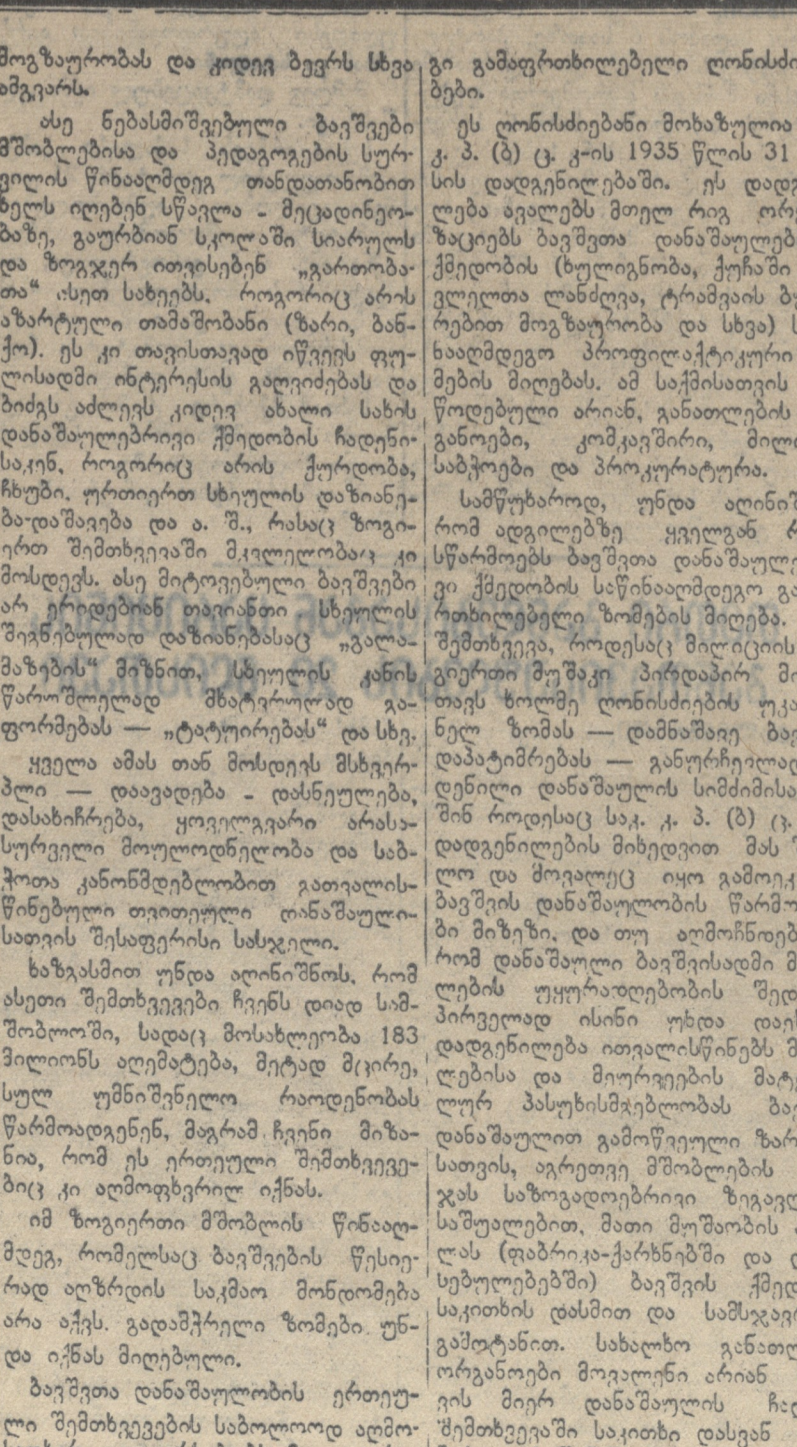 მოგზაურობას და კიდევ ბევრს სხვა
ამგვარს.
ასე ნებასმიშვებული ბავშვები
მშობლებისა და პედაგოგების სურ-
ვილის წინააღმდეგ თანდათანობით
ხელს იღებენ სწავლა - მეცადინეო-
ბაზე, გაურბიან სკოლაში სიარულს
და ზოგჯერ ითვისებენ „გართობა-
თა“ ისეთ სახეებს, როგორიც არის
აზარტული თამაშობანი (ზარი, ბან-
ქო). ეს კი თავისთავად იწვევს ფუ-
ლისადმი ინტერესის გაღვიძებას და
ბიძგს აძლევს კიდევ ახალი სახის
დანაშაულებრივი ქმედობის ჩადენი-
საკენ, როგორიც არის ქურდობა,
ჩხუბი, ურთიერთ სხეულის დაზიანე-
ბა-დაშავება და ა. შ., რასაც ზოგი-
ერთ შემთხვევაში მკვლელობაც კი
მოსდევს. ასე მიტოვებული ბავშვები
არ ერიდებიან თავიანთი სხეულის
შეგნებულად დაზიანებასაც „გალა-
მაზების“ მიზნით, სხეულის კანის
წარუშლელად მხატვრულად გა-
ფორმებას — „ტატუირებას“ და სხვ.
ყველა ამას თან მოსდევს მსხვერ-
პლი — დაავადება - დასნეულება,
დასახიჩრება, ყოველგვარი არასა-
სურველი მოულოდნელობა და საბ-
ჭოთა კანონმდებლობით გათვალის-
წინებული თვითეული დანაშაული-
სათვის შესაფერისი სასჯელი.
ხაზგასმით უნდა აღინიშნოს, რომ
ასეთი შემთხვევები ჩვენს დიად სამ-
შობლოში, სადაც მოსახლეობა 183
მილიონს აღემატება, მეტად მცირე,
სულ უმნიშვნელო რაოდენობას
წარმოადგენენ, მაგრამ ჩვენი მიზა-
ნია, რომ ეს ერთეული შემთხვევე-
ბიც კი აღმოფხვრილ იქნას.
იმ ზოგიერთი მშობლის წინააღ-
მდეგ, რომელსაც ბავშვების წესიე-
რად აღზრდის საკმაო მონდომება
არა აქვს. გადამჭრელი ზომები უნ-
და იქნას მიღებული.
ბავშვთა დანაშაულობის ერთეუ-
ლი შემთხვევების საბოლოოდ აღმო-
გი გამაფრთხილებელი ღონისძი
ბები.
ეს ღონისძიებანი მოხაზულია
კ. პ. (ბ) ც. კ-ის 1935 წლის 31
სის დადგენილებაში. ეს დადგ
ლება ავალებს მთელ რიგ ორგ
ზაციებს ბავშვთა დანაშაულებ
ქმედობის (ხულიგნობა, ქუჩაში
ვლელთა ლანძღვა, ტრამვაის ბუ
რებით მოგზაურობა და სხვა) ს
ხააღმდეგო პროფილაქტიკური
მების მიღებას. ამ საქმისათვის
წოდებული არიან, განათლების
განოები, კომკავშირი, მილი
საბჭოები და პროკურატურა.
სამწუხაროდ, უნდა აღინიშ
რომ ადგილებზე ყველგან რ
სწარმოებს ბავშვთა დანაშაულე
ვი ქმედობის საწინააღმდეგო გა
რთხილებელი ზომების მიღება.
შემთხვევა, როდესაც მილიციის
გიერთი მუშაკი პირდაპირ მი
თავს ხოლმე ღონისძიების უკა
ნელ ზომას — დამნაშავე ბავ
დაპატიმრებას — განურჩევლად
დენილი დანაშაულის სიმძიმისა
შინ როდესაც საკ. კ. პ. (ბ) ც.
დადგენილების მიხედვით მას
ლო და მოვალეც იყო გამოეკ
ბავშვის დანაშაულობის წარმო
ბი მიზეზი, და თუ აღმოჩნდებ
რომ დანაშაული ბავშვისადმი მ
ლების უყურადღებობის შედ
პირველად ისინი უხდა დაეს
დადგენილება ითვალისწინებს მ
ლებისა და მეურვეების მატე
ლურ პასუხისმგებლობას ბავ
დანაშაულით გამოწვეული ზარ
სათვის, აგრეთვე მშობლების
ჯას საზოგადოებრივი ზეგავლ
საშუალებით, მათი მუშაობის
ლას (ფაბრიკა-ქარხნებში და დ
სებულებებში) ბავშვის ქმედ
საკითხის დასმით და სამსჯავ
გამოტანით. სახალხო განათლ
ორგანოები მოვალენი არიან
ვის მიერ დანაშაულის ჩად
შემთხვევაში საკითხი დასვან